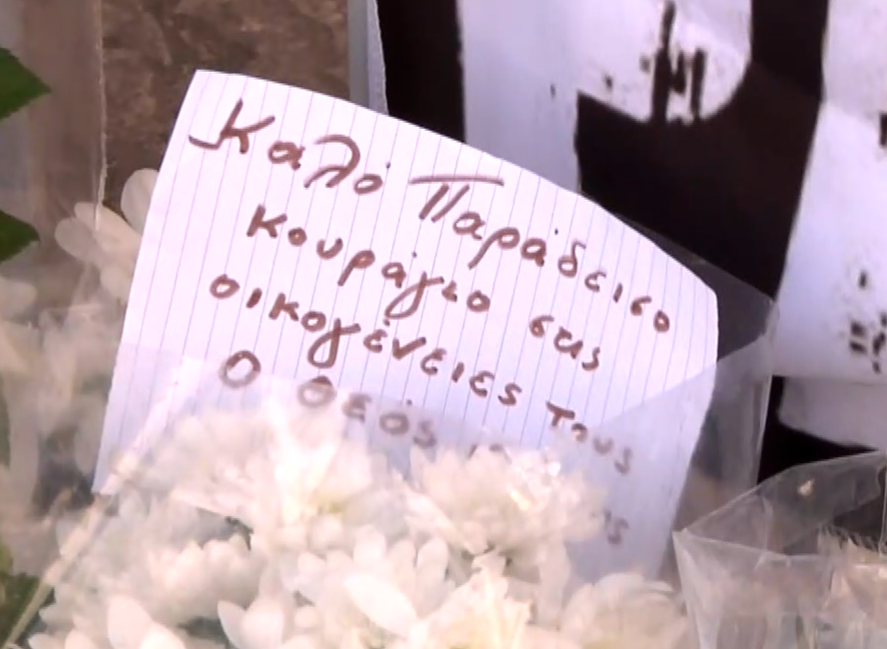 Καλό Παράδεισο
Κουράγιο στις
οικογένειες τους
Ο Θεός